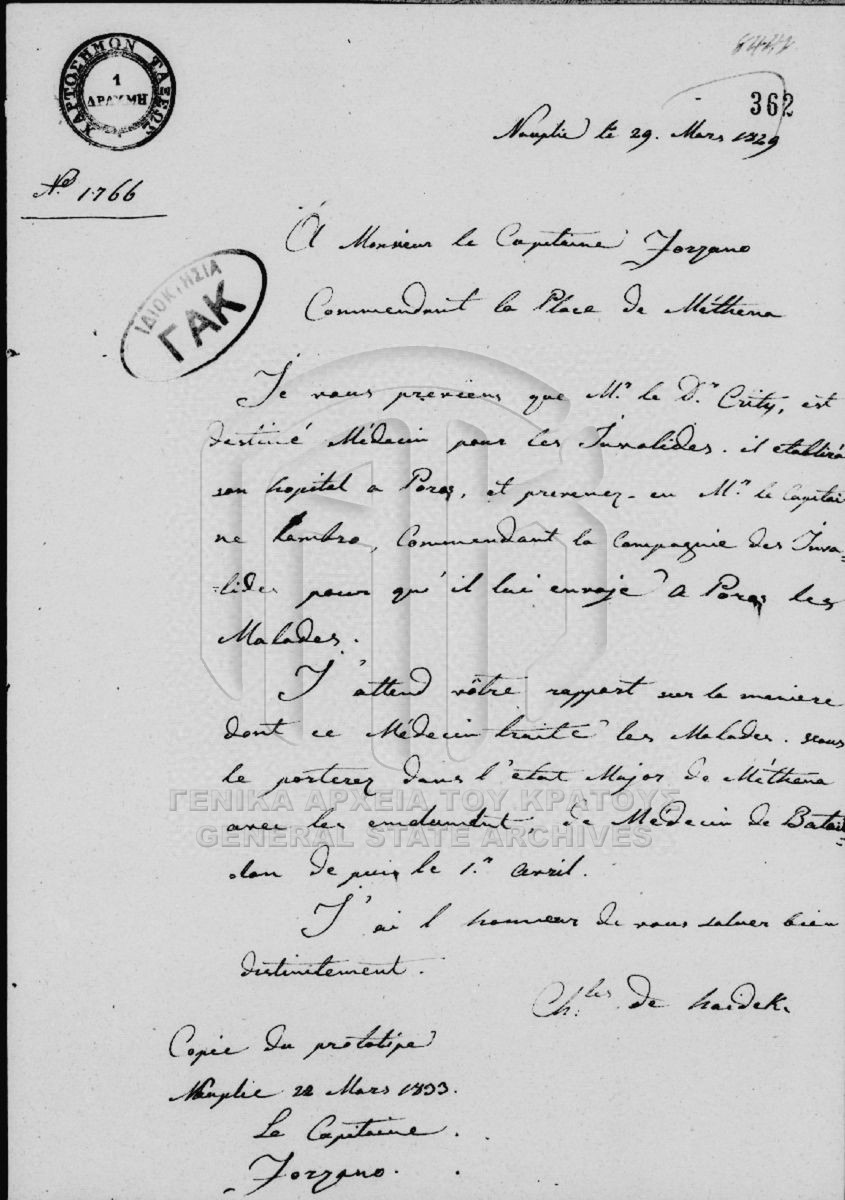 ΧΑΡΤΟΣΗΜΟΝ ΤΑΞΕΩΣ
1
ΔΡΑΧΜΗ
362
Nauplie le 29. Mars 1829
No 1766
ΙΔΙΟΚΤΗΣΙΑ
ΓΑΚ
A Monsieur le Capitaine Jorzano
Commendant la Place de Méthena
Je vous previens que Mr. le Dr. Crity, est
destiné Médecin pour les Invalides. il etablira
son hopital a Poros, et prevenez-en Mr. le Capitai
ne Lambro, Commendant la Compagnie des Inva-
lides pour qu'il lui envoje a Poros les
Malades.
J'attend vôtre rapport sur la meniere
dont ce Médecin traite les Malades. vous
le porterez dans l'etat Major de Méthena
ΓΕΝΙΚΑ ΑΡΧΕΙΑ ΤΟΥ ΚΡΑΤΟΥΣ
GENERAL STATE ARCHIVES
avec les de Medecin de Batail
lon de puis le 1.r avril.
J'ai l honneur de vous saluer bien
distinitement.
Ch.les de haidek.
Copie du prototipe
Nauplie 22 Mars 1833.
Le Capitaine
Jorzano.